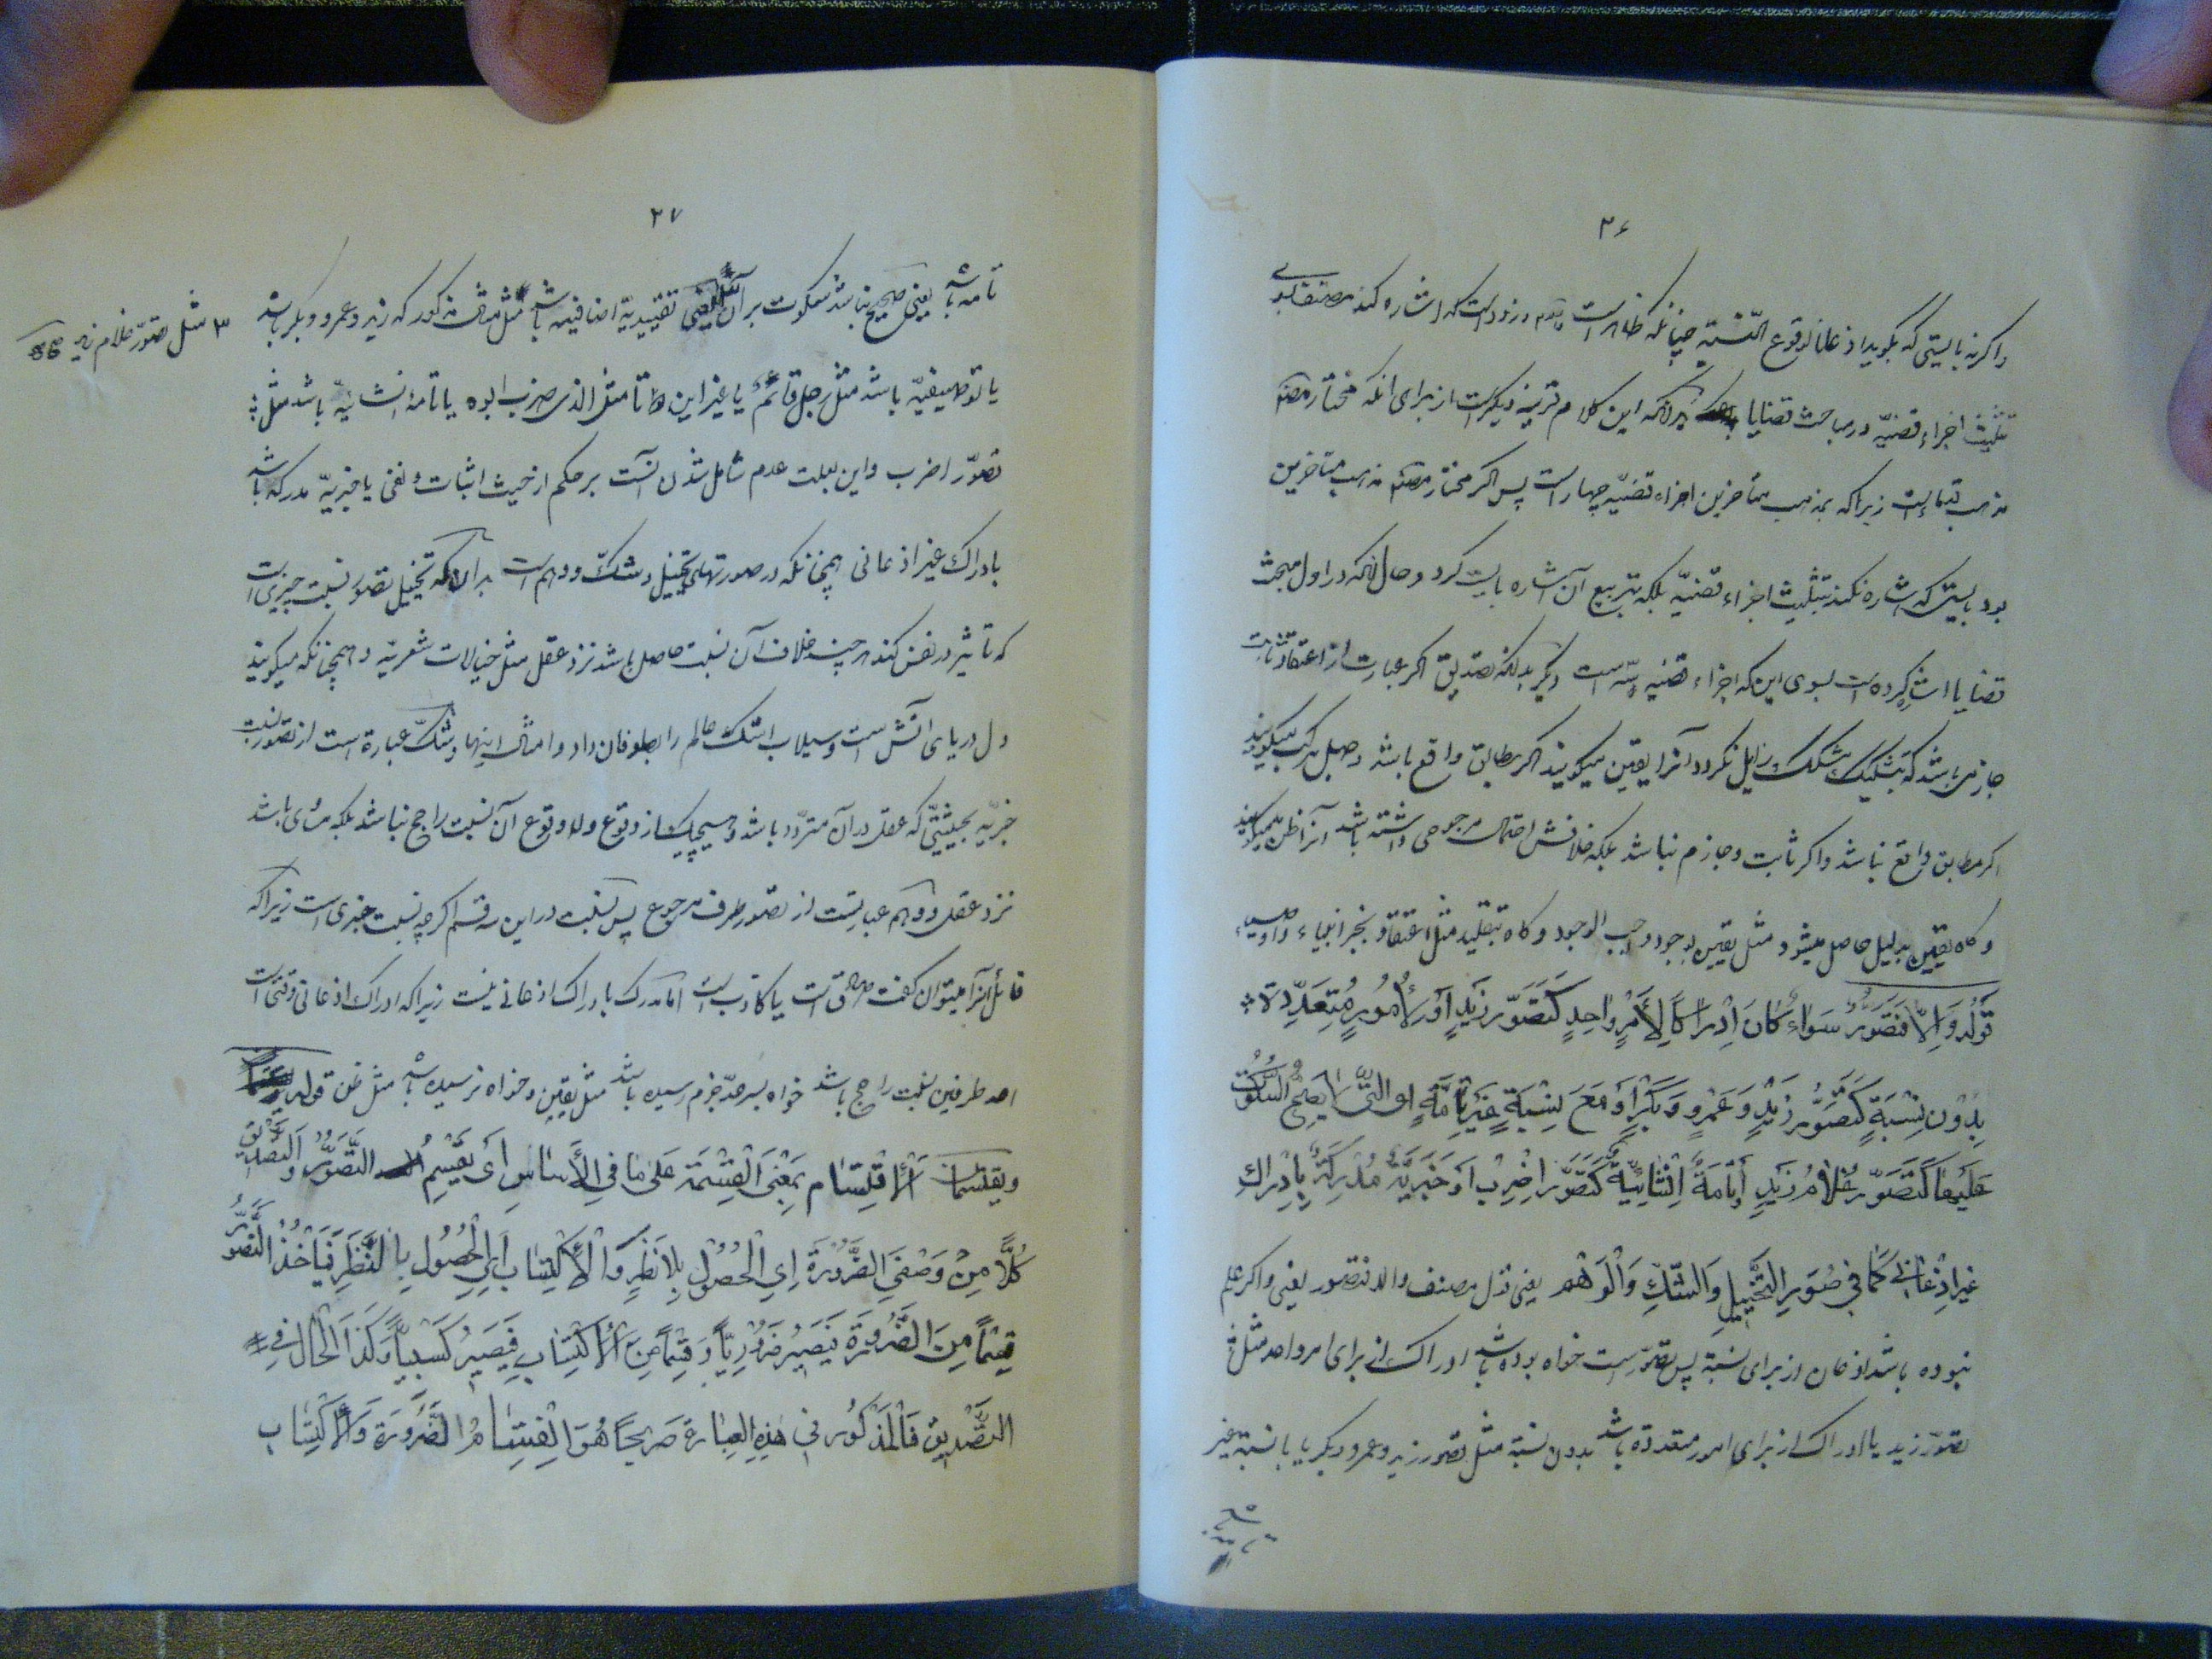 ۲۶
واگرنه بایستی که بگوید اذعانا لوقوع النّسبة چنانکه ظاهر است و زود است که اشاره کند مصنف بسوی
تثلیث اجزاء قضیّه در مباحث قضایا زیرانکه این کلام قرینه دیگر است از برای انکه مختار مصنّف
مذهب قدماء است زیراکه بمذهب متأخرین اجزاء قضیّه چهار است پس اگر مختار مصنّف مذهب متأخرین
بود بایستی که اشاره نکند بتثلیث اجزاء قضیّه بلکه بتربیع آن اشاره بایست کرد و حال آنکه در اول مبحث
قضایا اشاره کرده است بسوی این که اجزاء قضیه سّه است دیگر بدانکه تصدیق اگر عبارت از اعتقاد ثابت
جازمی باشد که بتشکیک مشکک زایل نگردد آنرا یقین میگویند اگر مطابق واقع باشد و جهل مرکب میگویند
اگر مطابق واقع نباشد واگر ثابت و جازم نباشد بلکه خلافش احتمال مرجوحی داشته باشد آنرا ظن میگویند
و گاه یقین بدلیل حاصل میشود مثل یقین بوجود واجب الوجود و گاه بتقلید مثل اعتقاد بخبر انبیاء و اوصیاء
قَولُه وَاِلّا فَتَصَوّر سَوَاء کَانَ اِدْرَاکاً لِأَمْرٍ وَاحِدٍ کَتَصَوّرِ زَیدٍ اَوْ لِأُمُورٍ مُتَعَدِّدَة
بِدُونِ نِسْبَةٍ کَتَصَوُّرِ زَیْدٍ وَ عَمْرٍو وَ بَکْرٍ اَوْ مَعَ نِسْبَةٍ غَیْرِ تَامَّةٍ ای الّتی لا یَصِحُّ السُّکُوت
عَلَیها کَتَصَوّرِ غُلامُ زَیدٍ اَوْ تامَةٌ اِنْشائیّة کَتَصَوّرِ اِضْرِبْ اَوْ خَبَریّة مُدْرِکَةٌ بِاِدْراکِ
غیر اِذْعانی کَما فی صُوَرِ التَّخْییلِ وَالشّکِّ وَالْوَهْم یعنی قول مصنف والا فتصور یعنی واگر علم
نبوده باشد اذعان از برای نسبة پس تصوّر است خواه بوده باشد ادراک از برای امر واحد مثل
تصوّر زید یا ادراک از برای امور متعدّده باشد بدون نسبة مثل تصور زید و عمرو و بکر یا با نسبة غیر
۲۷
تامه باشد یعنی صحیح نباشد سکوت بر آن تقییدیّه اضافیه باشد مثل مثال مذکور که زید و عمرو و بکر باشد
۳ مثل تصوّر غلام زید صح
یا توصیفیّه باشد مثل رجل قائمٌ یا غیر این مثل الذی ضرب ابوه یا تامهٔ انشائیّه باشد مثل
تصوّر اضرب و این بعلت عدم شامل شدن آنست بر حکم از حیث اثبات و نفی یا خبریّه مدرکه باشد
بادراک غیر اذعانی همچنانکه در صورتهای تخییل و شکّ و وهم است بدانکه تخییل تصوّر نسبت چیزی است
که تأثیر در نفس کند هر چند خلاف آن نسبت حاصل باشد نزد عقل مثل خیالات شعریّه و همچنانکه میگویند
دل دریای آتش است و سیلاب اشک عالم را بطوفان داد و امثال اینها و شکّ عبارة است از تصوّر نسبت
خبریّه بحیثیّتی که عقل در آن متردّد باشد و هیچیک از وقوع و لا وقوع آن نسبت راجح نباشد بلکه مساوی باشد
نزد عقل و وهم عبارتست از تصوّر طرف مرجوح پس نسبت در این سه قسم اگرچه نسبت خبری است زیراکه
قائل آنرا میتوان گفت صادق است یا کاذب است اما مدرک بادراک اذعانی نیست زیراکه ادراک اذعانی وقتی است
احد طرفین نسبت راجح باشد خواه بسر حدّ جزم رسیده باشد مثل یقین و خواه نرسیده باشد مثل ظن قوله
ویقتسمان اَلْاِقْتِسام بِمَعْنَی الْقِسْمَة عَلی ما فِی الْأَساسِ اَی یَقْتَسِمُ التَّصَوُّر و التَّصْدیق
کُلّاً مِنْ وَصْفَیِ الضَّرُورَة اِی الْحُصُولِ بِلا نَظَرٍ وَ الْاِکْتِساب اَیِ الْحُصُولِ بِالنَّظَرِ فَیَأْخُذُ التَّصَوُّرُ
قِسْماً مِنَ الضَّرُورَةِ فَیَصیرُ ضَرُورِیّاً وَ قِسْماً مِنَ الْاِکْتِسابِ فَیَصیرُ کَسْبِیّاً وَ کَذَا الْحالُ فِی
التَّصْدیقِ فَالْمَذْکُور فی هٰذِهِ العِبارَةِ صَریحاً هُوَ اِنْقِسامُ الضَّرُورَة وَ الْاِکْتِساب